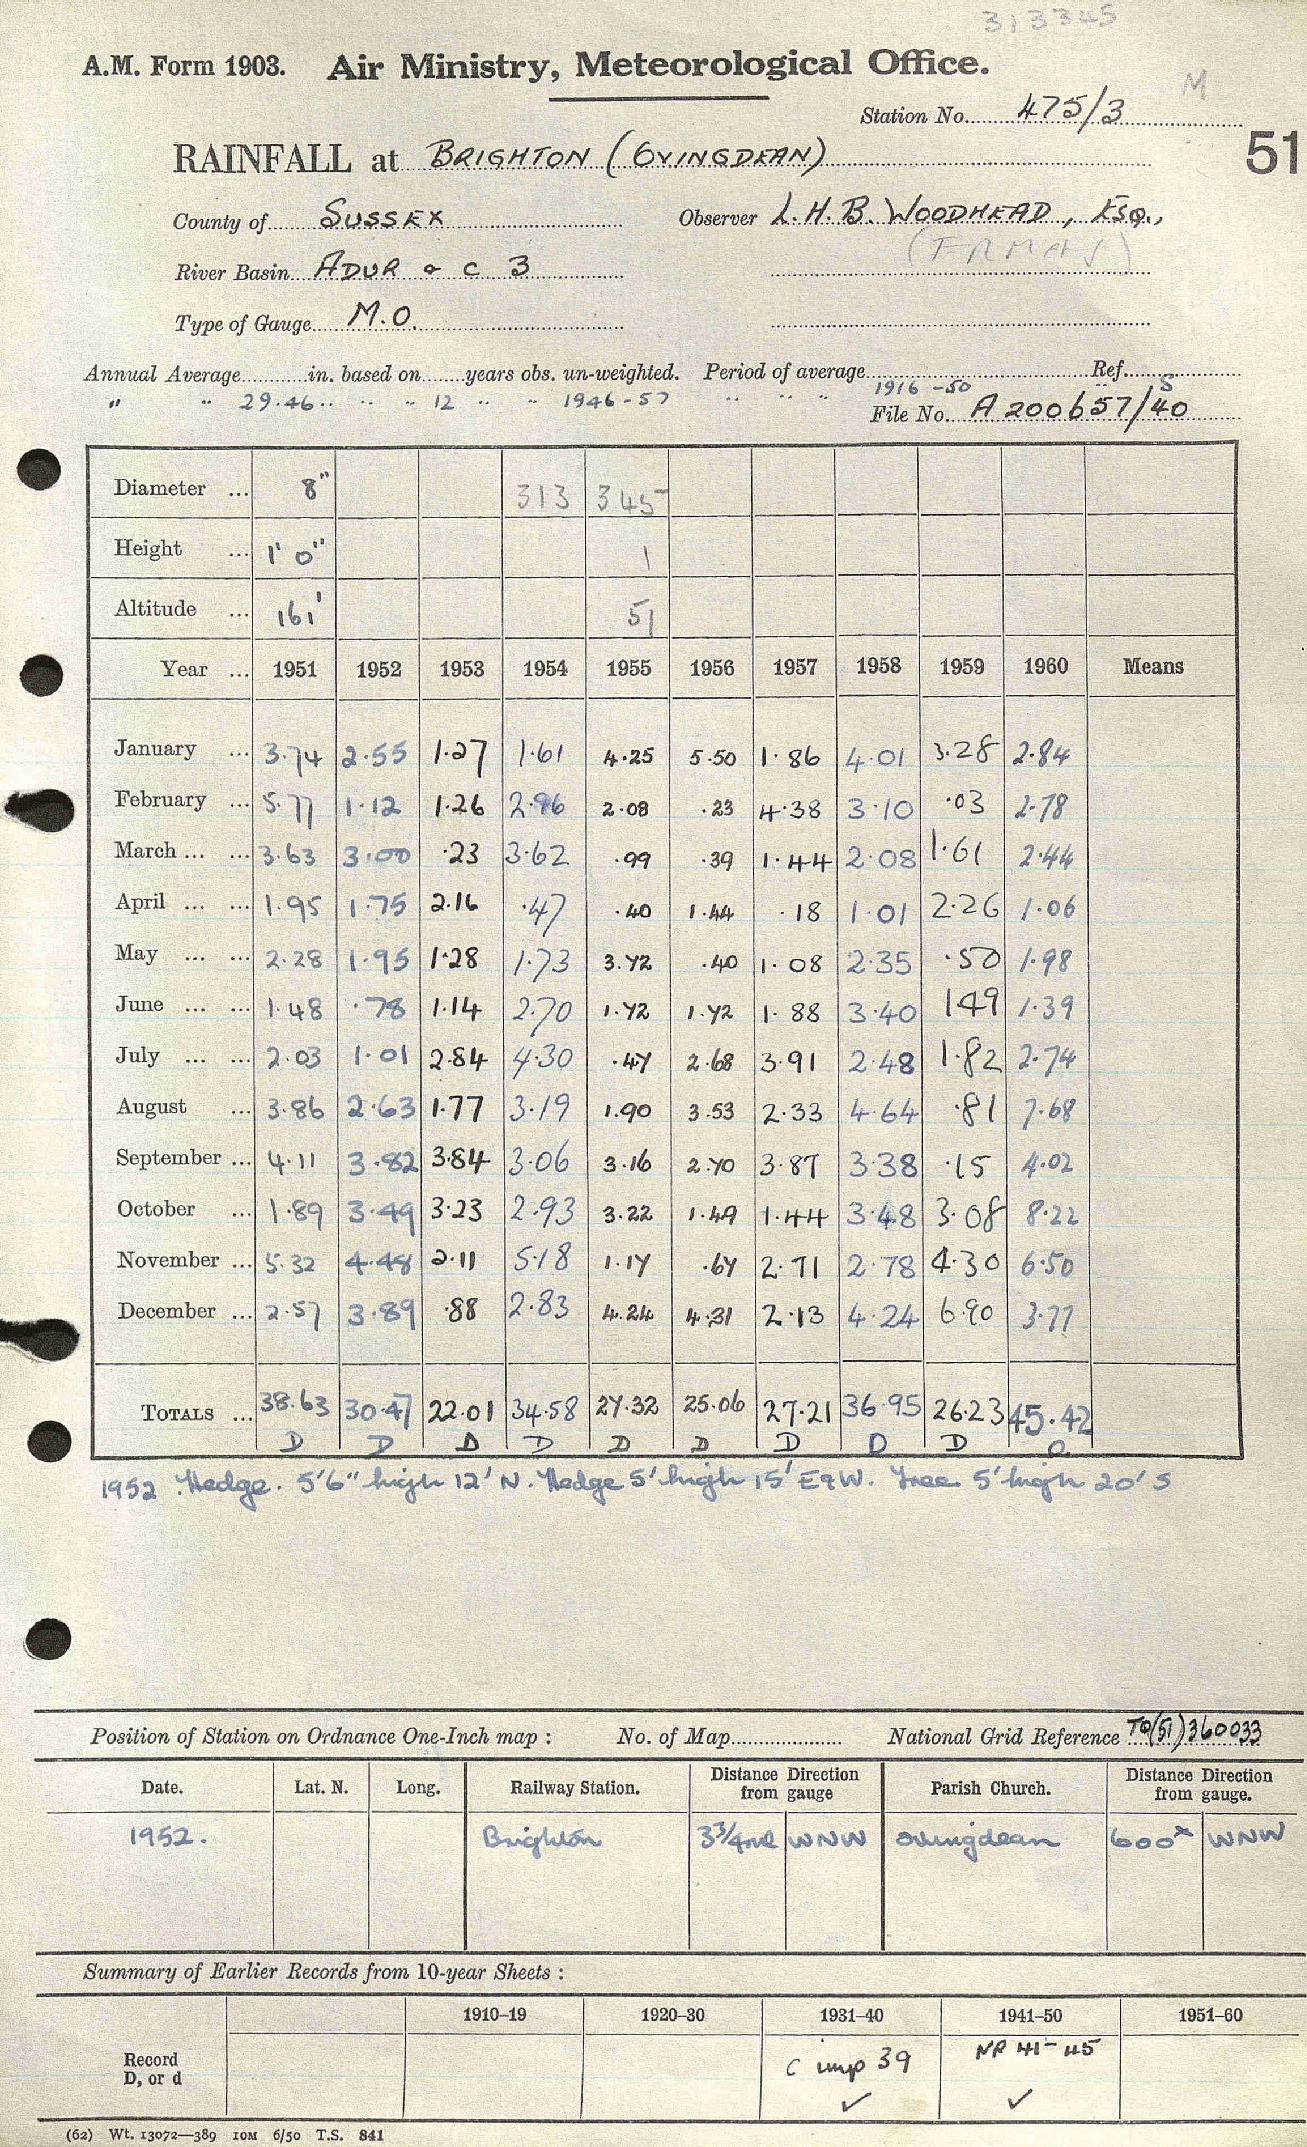 313345
A.M. Form 1903. Air Ministry, Meteorological Office.
M
Station No. 475/3
RAINFALL at BRIGHTON (OVINGDEAN)
51
County of SUSSEX Observer L.H.B. WOODHEAD, ESQ.,
River Basin ADUR & C 3
Type of Gauge M.O.
Annual Average in. based on years obs. un-weighted. Period of average Ref.
" " 29.46 " " " 12 " " 1946-57 " " " 1916-50 S
File No. A200657/40
Diameter ... 8" 313 345
Height ... 1' 0" 1
Altitude ... 161' 51
Year ... 1951 1952 1953 1954 1955 1956 1957 1958 1959 1960 Means
January ... 3.74 2.55 1.27 1.61 4.25 5.50 1.86 4.01 3.28 2.84
February ... 5.77 1.12 1.26 2.96 2.08 .23 4.38 3.10 .03 2.78
March ... ... 3.63 3.00 .23 3.62 .99 .39 1.44 2.08 1.61 2.44
April ... ... 1.95 1.75 2.16 .47 .40 1.44 .18 1.01 2.26 1.06
May ... ... 2.28 1.95 1.28 1.73 3.72 .40 1.08 2.35 .50 1.98
June ... ... 1.48 .78 1.14 2.70 1.72 1.72 1.88 3.40 1.49 1.39
July ... ... 2.03 1.01 2.84 4.30 .47 2.68 3.91 2.48 1.82 2.74
August ... 3.86 2.63 1.77 3.19 1.90 3.53 2.33 4.64 .81 7.68
September ... 4.11 3.82 3.84 3.06 3.16 2.70 3.87 3.38 .15 4.02
October ... 1.89 3.49 3.23 2.93 3.22 1.49 1.44 3.48 3.08 8.22
November ... 5.32 4.48 2.11 5.18 1.17 .67 2.71 2.78 4.30 6.50
December ... 2.57 3.89 .88 2.83 4.24 4.31 2.13 4.24 6.90 3.77
TOTALS ... 38.63 30.47 22.01 34.58 27.32 25.06 27.21 36.95 26.23 45.42
D D D D D D D D D
1952 . Hedge. 5'6" high 12' N. Hedge 5' high 15' E&W. Tree 5' high 20' S
Position of Station on Ordnance One-Inch map : No. of Map National Grid Reference TQ(51)360033
Date. Lat. N. Long. Railway Station. Distance from gauge Direction Parish Church. Distance from gauge. Direction
1952. Brighton 3¾ml WNW Ovingdean 600x WNW
Summary of Earlier Records from 10-year Sheets :
1910–19 1920–30 1931–40 1941–50 1951–60
Record D, or d C imp 39 ✓ NR 41-45 ✓
(62) Wt. 13072—389 10M 6/50 T.S. 841